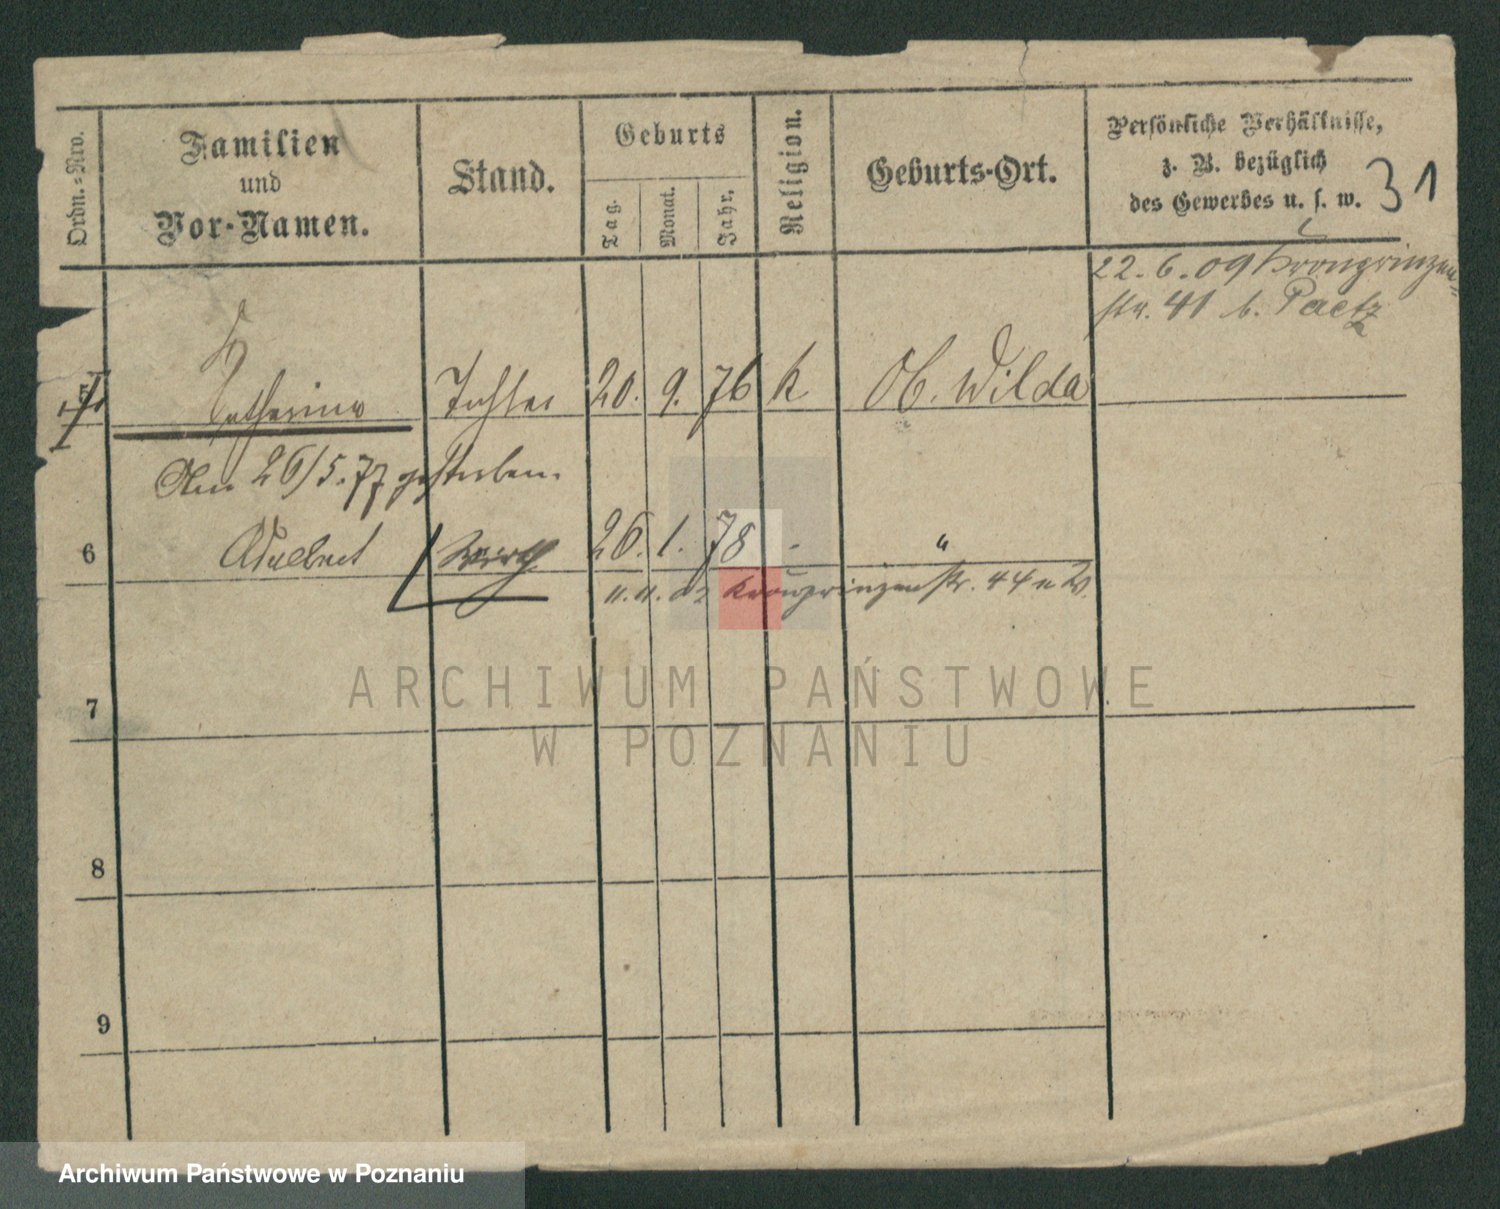 Ordn.=Nro.
Familien
und
Vor-Namen.
Stand.
Geburts
Tag.
Monat.
Jahr.
Religion.
Geburts-Ort.
Persönliche Verhältnisse,
z. B. bezüglich
des Gewerbes u. s. w.
31
22. 6. 09 Kronprinzen
str. 41 b. Paetz
5 Catharina Tochter 20. 9. 76 k Ob. Wilda
Am 26/5. 77 gestorben.
6 Adalbert 26. 1. 78 - "
11. 11. 02 Kronprinzenstr. 44 n W.
7
8
9
ARCHIWUM PAŃSTWOWE
W POZNANIU
Archiwum Państwowe w Poznaniu